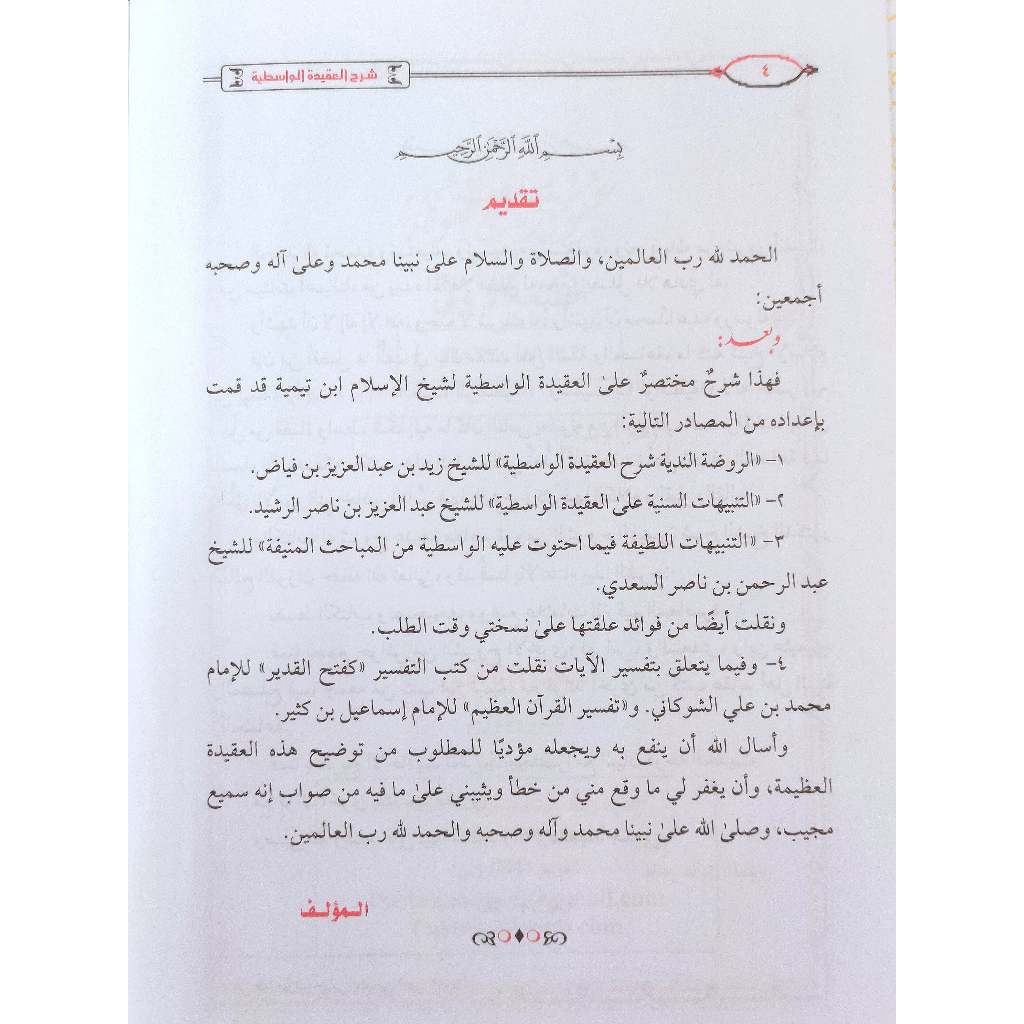 ٤
شرح العقيدة الواسطية
بِسْمِ ٱللَّهِ ٱلرَّحْمَٰنِ ٱلرَّحِيمِ
تقديم
الحمد لله رب العالمين، والصلاة والسلام علىٰ نبينا محمد وعلىٰ آله وصحبه
أجمعين:
وبعد:
فهذا شرحٌ مختصرٌ علىٰ العقيدة الواسطية لشيخ الإسلام ابن تيمية قد قمت
بإعداده من المصادر التالية:
١- «الروضة الندية شرح العقيدة الواسطية» للشيخ زيد بن عبد العزيز بن فياض.
٢- «التنبيهات السنية علىٰ العقيدة الواسطية» للشيخ عبد العزيز بن ناصر الرشيد.
٣- «التنبيهات اللطيفة فيما احتوت عليه الواسطية من المباحث المنيفة» للشيخ
عبد الرحمن بن ناصر السعدي.
ونقلت أيضًا من فوائد علقتها علىٰ نسختي وقت الطلب.
٤- وفيما يتعلق بتفسير الآيات نقلت من كتب التفسير «كفتح القدير» للإمام
محمد بن علي الشوكاني. و«تفسير القرآن العظيم» للإمام إسماعيل بن كثير.
وأسال الله أن ينفع به ويجعله مؤديًا للمطلوب من توضيح هذه العقيدة
العظيمة، وأن يغفر لي ما وقع مني من خطأ ويثيبني علىٰ ما فيه من صواب إنه سميع
مجيب، وصلىٰ الله علىٰ نبينا محمد وآله وصحبه والحمد لله رب العالمين.
المؤلف